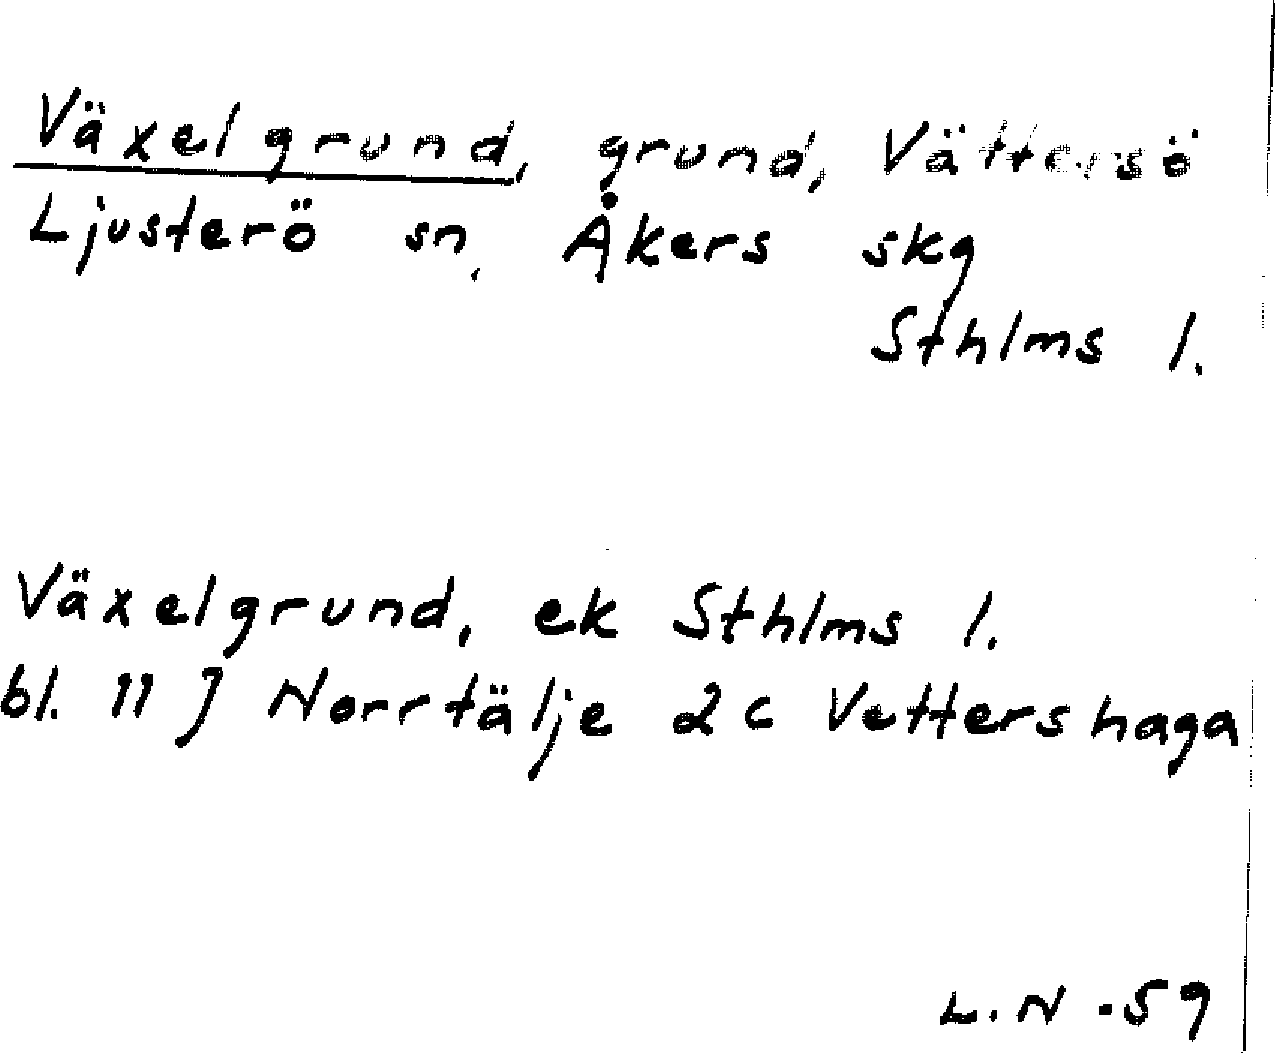 Växelgrund, grund, Vättersö
Ljusterö sn, Åkers skg
Sthlms l.
Växelgrund, ek Sthlms l.
bl. 11 J Norrtälje 2c Vettershaga
L.N -59